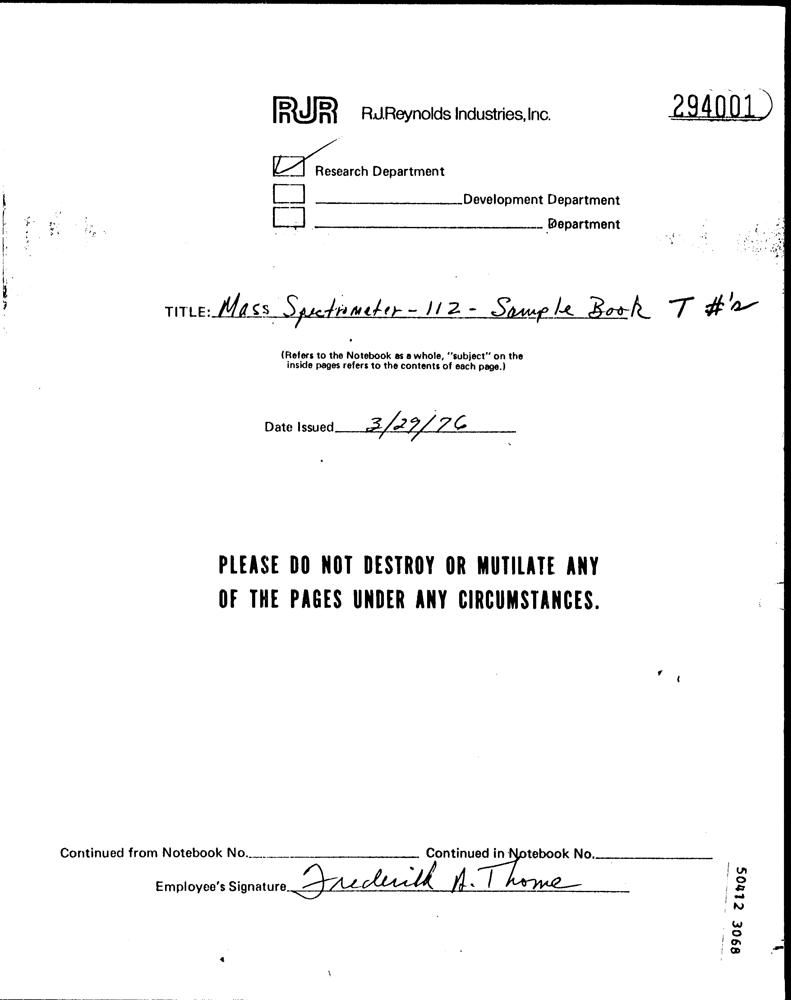 RJR R.J.Reynolds Industries, Inc. 294001
Research Department
Development Department
Department
TITLE: Mass Spectrometer - 112 - Sample Book T #'s
(Refers to the Notebook as a whole, "subject" on the
inside pages refers to the contents of each page.)
Date Issued 3/29/76
PLEASE DO NOT DESTROY OR MUTILATE ANY
OF THE PAGES UNDER ANY CIRCUMSTANCES.
Continued from Notebook No. Continued in Notebook No.
Employee's Signature Frederick A. Thome
50412 3068